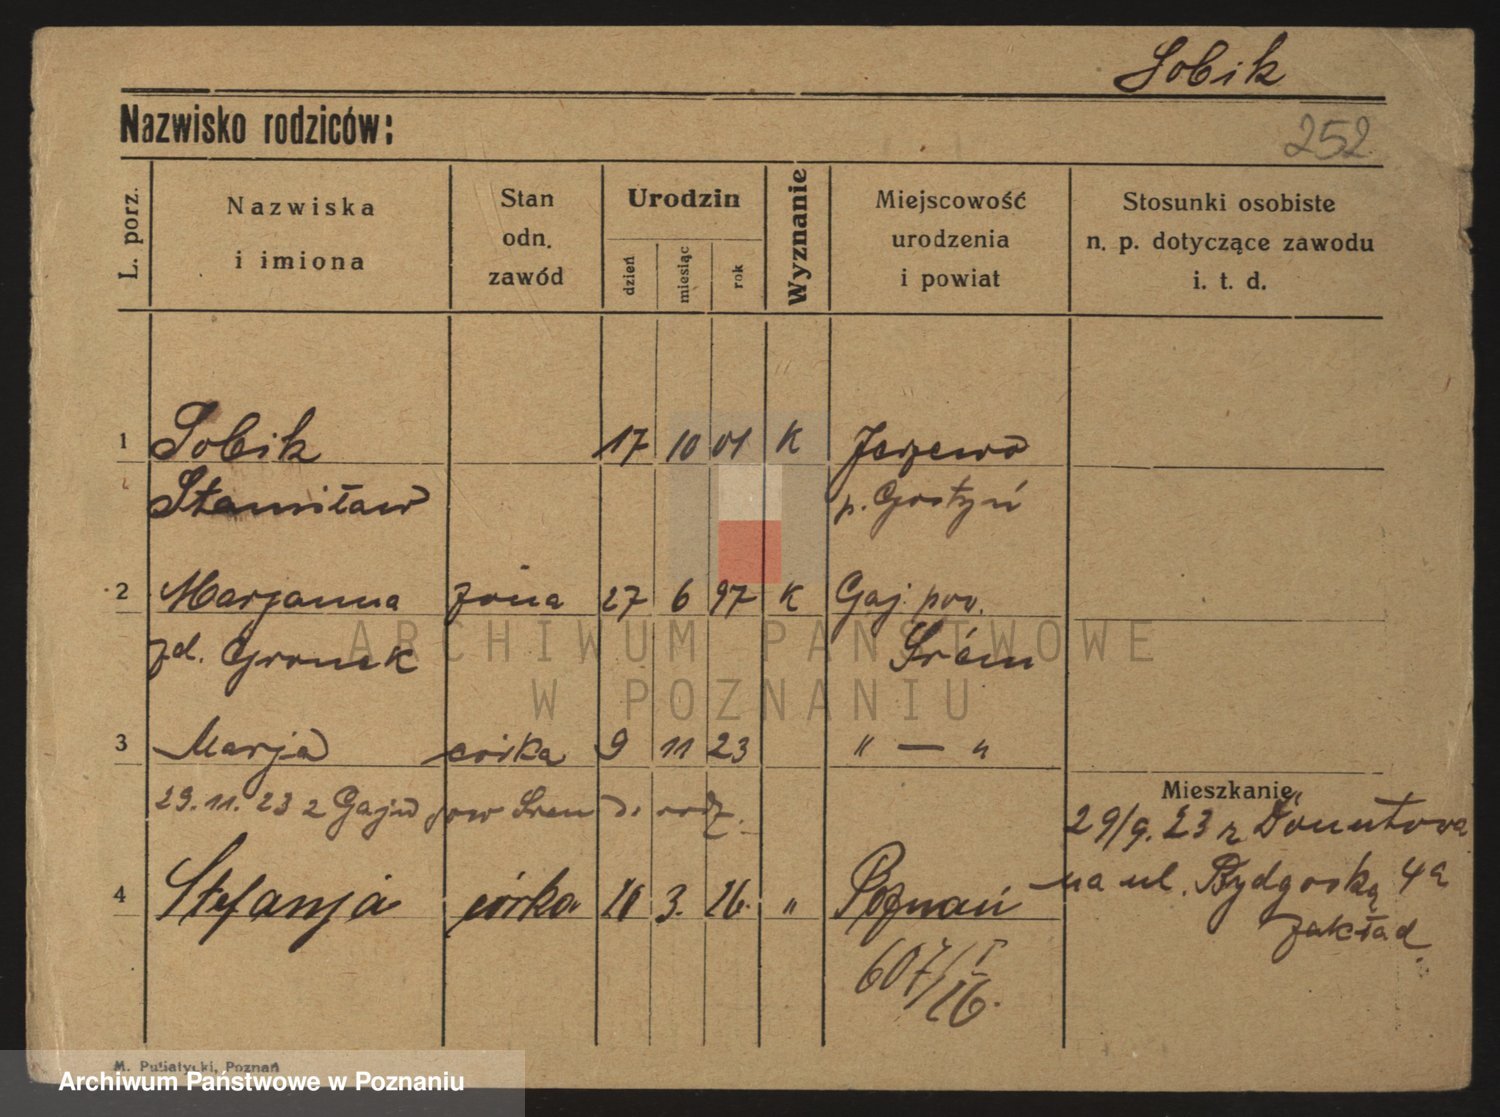 Sobik
Nazwisko rodziców:
252
L. porz.
Nazwiska
i imiona
Stan
odn.
zawód
Urodzin
dzień
miesiąc
rok
Wyznanie
Miejscowość
urodzenia
i powiat
Stosunki osobiste
n. p. dotyczące zawodu
i. t. d.
1 Sobik 17 10 01 K Jerzewo
Stanisław p. Gostyń
2 Marjanna żona 27 6 97 K Gaj pow.
zd. Gronek Śrem
3 Marja córka 9 11 23 " — "
29.11.23 z Gaju pow Śrem d. rodz.
Mieszkanie
29/9.23 z
na ul. Bydgoską 4a
zakład.
4 Stefanja córka 16 3. 26. " Poznań
607/I/26.
ARCHIWUM PAŃSTWOWE
W POZNANIU
M. Putiatycki, Poznań
Archiwum Państwowe w Poznaniu